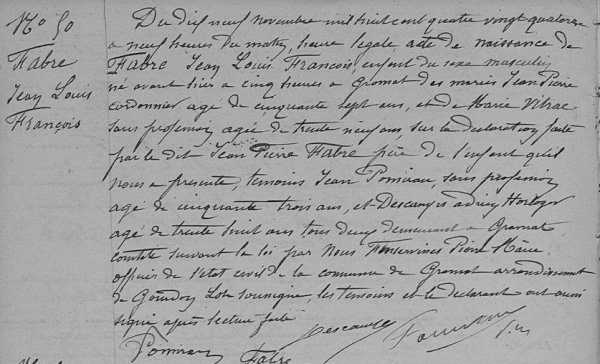 No 50
Fabre
Jean Louis
François
Du dix neuf novembre mil huit cent quatre vingt quatorze
a neuf heures du matin, heure légale, acte de naissance de
Fabre Jean Louis François enfant du sexe masculin
né avant hier a cinq heures a Gramat des mariés Jean Pierre
cordonnier agé de cinquante sept ans, et de Marie
sans profession agée de trente neuf ans, sur la déclaration faite
par le dit Jean Pierre Fabre père de l'enfant qu'il
nous a présenté, témoins Jean Pomirau, sans profession
agé de cinquante trois ans, et horloger
agé de trente huit ans tous deux demeurant a Gramat
constaté suivant la loi par Nous Pierre Maire
officier de l'état civil de la commune de Gramat arrondissement
de Gourdon Lot soussigné, les témoins et le déclarant ont aussi
signé après lecture faite
Pomirau Fabre